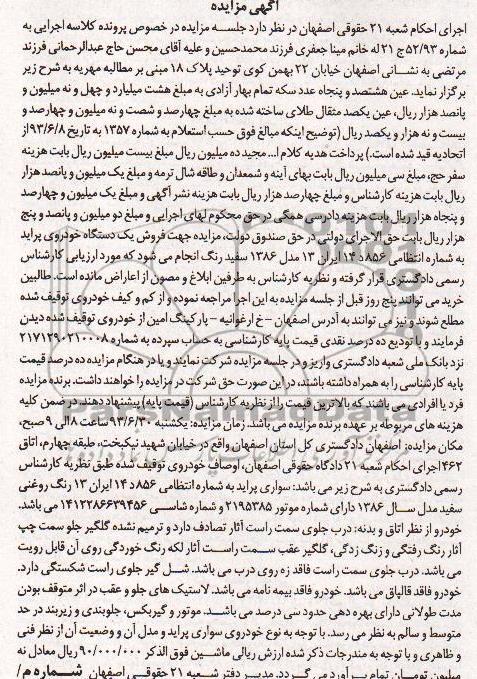 آگهی مزایده
اجرای احکام شعبه ۲۱ حقوقی اصفهان در نظر دارد جلسه مزایده در خصوص پرونده کلاسه اجرایی به
شماره ۵۲/۹۳ ج ۲۱ له خانم مینا جعفری فرزند محمدحسین و علیه آقای محسن حاج عبدالرحمانی فرزند
مرتضی به نشانی اصفهان خیابان ۲۲ بهمن کوی توحید پلاک ۱۸ مبنی بر مطالبه مهریه به شرح زیر
برگزار نماید. عین هشتصد و پنجاه عدد سکه تمام بهار آزادی به مبلغ هشت میلیارد و چهل و نه میلیون و
پانصد هزار ریال، عین یکصد مثقال طلای ساخته شده به مبلغ چهارصد و شصت و نه میلیون و چهارصد و
بیست و نه هزار و یکصد ریال (توضیح اینکه مبالغ فوق حسب استعلام به شماره ۱۳۵۷ به تاریخ ۹۳/۶/۸ از
اتحادیه قید شده است.) پرداخت هدیه کلام ا... مجید ده میلیون ریال مبلغ بیست میلیون ریال بابت هزینه
سفر حج، مبلغ سی میلیون ریال بابت بهای آینه و شمعدان و طاقه شال ترمه و مبلغ یک میلیون و پانصد هزار
ریال بابت هزینه کارشناس و مبلغ چهارصد هزار ریال بابت هزینه نشر آگهی و مبلغ یک میلیون و چهارصد
و پنجاه هزار ریال بابت هزینه دادرسی همگی در حق محکوم لهای اجرایی و مبلغ دو میلیون و پانصد و پنج
هزار ریال بابت حق الاجرای دولتی در حق صندوق دولت، مزایده جهت فروش یک دستگاه خودروی پراید
به شماره انتظامی ۸۵۶د۱۴ ایران ۱۳ مدل ۱۳۸۶ سفید رنگ انجام می شود که مورد ارزیابی کارشناس
رسمی دادگستری قرار گرفته و نظریه کارشناس به طرفین ابلاغ و مصون از اعتراض مانده است. طالبین
خرید می توانند پنج روز قبل از جلسه مزایده به این اجرا مراجعه نموده و از کم و کیف خودروی توقیف شده
مطلع شوند و نیز می توانند به آدرس اصفهان – خ ارغوانیه – پارکینگ امین از خودروی توقیف شده دیدن
فرمایند و با تودیع ده درصد نقدی قیمت پایه کارشناسی به حساب سپرده به شماره ۲۱۷۱۲۹۰۲۱۰۰۰۸
نزد بانک ملی شعبه دادگستری واریز و در جلسه مزایده شرکت نمایند و یا در هنگام مزایده ده درصد قیمت
پایه کارشناسی را به همراه داشته باشند، در این صورت حق شرکت در مزایده را خواهند داشت. برنده مزایده
فرد یا افرادی می باشند که بالاترین قیمت را از نظریه کارشناس (قیمت پایه) پیشنهاد دهند، در ضمن کلیه
هزینه های مربوطه بر عهده برنده مزایده می باشد. زمان مزایده: یکشنبه ۹۳/۶/۳۰ ساعت ۸ الی ۹ صبح،
مکان مزایده: اصفهان دادگستری کل استان اصفهان واقع در خیابان شهید نیکبخت، طبقه چهارم، اتاق
۴۶۲ اجرای احکام شعبه ۲۱ دادگاه حقوقی اصفهان، اوصاف خودروی توقیف شده طبق نظریه کارشناس
رسمی دادگستری به شرح زیر می باشد: سواری پراید به شماره انتظامی ۸۵۶د۱۴ ایران ۱۳ رنگ روغنی
سفید مدل سال ۱۳۸۶ دارای شماره موتور ۲۱۹۵۳۸۵ و شماره شاسی ۱۴۱۲۲۸۶۶۳۹۴۵۶ می باشد.
خودرو از نظر اتاق و بدنه: درب جلوی سمت راست آثار تصادف دارد و ترمیم نشده گلگیر جلو سمت چپ
آثار رنگ رفتگی و زنگ زدگی، گلگیر عقب سمت راست آثار لکه رنگ خوردگی روی آن قابل رویت
می باشد. درب جلوی سمت راست فاقد زه روی درب می باشد. شل گیر جلوی راست شکستگی دارد.
خودرو فاقد قالپاق می باشد. خودرو فاقد بیمه نامه می باشد. لاستیک های جلو و عقب در اثر متوقف بودن
مدت طولانی دارای بهره دهی حدود سی درصد می باشد. موتور و گیربکس، جلوبندی و زیربند در حد
متوسط و سالم به نظر می رسد. با توجه به نوع خودروی سواری پراید و مدل آن و وضعیت آن از نظر فنی
و ظاهری و با توجه به مندرجات ذکر شده ارزش ریالی ماشین فوق الذکر ۹۰/۰۰۰/۰۰۰ ریال معادل نه
میلیون تومان تمام برآورد می گردد. مدیر دفتر شعبه ۲۱ حقوقی اصفهان شماره م/